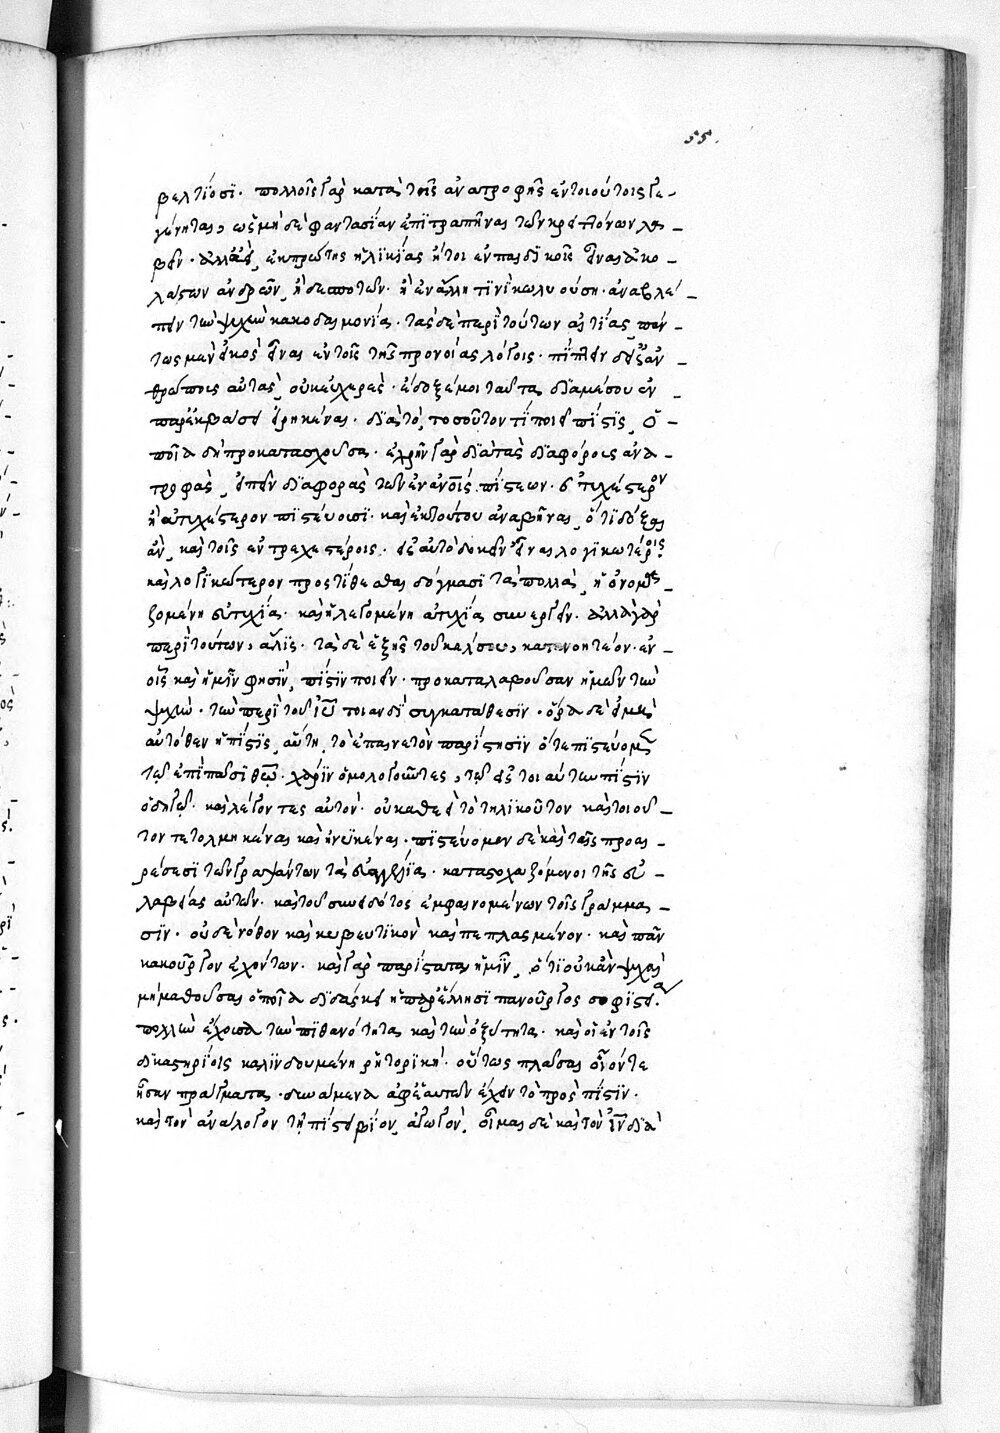 55.
βελτίοσι. πολλοῖς γὰρ κατὰ τοῖς ἀνατροφῆς ἐν τοιούτοις γε-
γένηται, ὡς μηδὲ φαντασίαν ἐπιτραπῆναι τῶν κρειττόνων λα-
βεῖν. ἀλλ' ἀεὶ, ἐκ πρώτης ἡλικίας ἤτοι ἐν παιδικοῖς εἶναι ἀκο-
λάστων ἀνδρῶν, ἢ δεσποτῶν. ἢ ἐν ἄλλῃ τινὶ κωλυούσῃ. ἀναβλέ-
πειν τὴν ψυχὴν κακοδαιμονίᾳ. τὰς δὲ περὶ τούτων αἰτίας πάν-
τως μὲν εἰκὸς εἶναι ἐν τοῖς τῆς προνοίας λόγοις. πίπτειν δὲ ἐξ ἀν-
θρώποις αὐτὰς, οὐκ εὐχερές. ἔδοξέ μοι ταῦτα, διὰ μέσου ἐν
παρεκβάσει εἰρηκέναι. διὰ τὸ, τοσοῦτόν τι ποιεῖ πίστις, ὁ-
ποῖα δὴ προκατασχοῦσα. ἐχρῆν γὰρ διὰ τὰς διαφόρους ἀνα-
τροφὰς, εἰπεῖν διαφορὰς τῶν ἐν ἀνοις πίστεων. εὐτυχέστερον
ἢ ἀτυχέστερον πιστεύουσι. καὶ ἐκ τούτου ἀναβῆναι, ὅτι δόξαι
ἂν, καὶ τοῖς ἐντρεχεστέροις. εἰς αὐτὸ δοκεῖν εἶναι λογικωτέροις.
καὶ λογικώτερον προστίθεσθαι δόγμασι τὰ πολλὰ, ἡ ὀνομα-
ζομένη εὐτυχία. καὶ ἡ λεγομένη ἀτυχία συνεργεῖν. ἀλλὰ γὰρ
περὶ τούτων, ἅλις. τὰ δὲ ἑξῆς τοῦ κέλσου, κατανοητέον. ἐν
οἷς καὶ ἡμῖν φησὶν, πίστιν ποιεῖν. προκαταλαβοῦσαν ἡμῶν τὴν
ψυχὴν. τὴν περὶ τοῦ ιυ τοιάνδε συγκατάθεσιν. ὅρα δὲ εἰ μὴ
αὐτόθεν ἡ πίστις, αὕτη, τὸ ἐπαινετὸν παρίστησιν ὅτε πιστεύομεν
τῷ ἐπὶ πᾶσι θω. χάριν ὁμολογοῦντες, τῷ εἰς τοιαύτην πίστιν
ὁδηγῷ. καὶ λέγοντες αὐτὸν. οὐκ ἀθεεὶ τὸ τηλικοῦτον καὶ τοιοῦ-
τον τετολμηκέναι καὶ ἠνυκέναι. πιστεύομεν δὲ καὶ ταῖς προαι-
ρέσεσι τῶν γραψάντων τὰ εὐαγγέλια. καταστοχαζόμενοι τῆς εὐ-
λαβείας αὐτῶν. καὶ τοῦ συνειδότος ἐμφαινομένων τοῖς γράμμα-
σιν. οὐδὲ νόθον καὶ κυβευτικὸν καὶ πεπλασμένον. καὶ πᾶν
κακοῦργον ἐχόντων. καὶ γὰρ παρίσταται ἡμῖν, ὅτι οὐκ ἂν ψυχαὶ
μὴ μαθοῦσαι ὁποῖα διδάσκει ἡ παρ' ἕλλησι πανοῦργος σοφιστεία.
πολλὴν ἔχουσα τὴν πιθανότητα καὶ τὴν ὀξύτητα. καὶ οἱ ἐν τοῖς
δικαστηρίοις καλινδουμένη ῥητορική. οὕτως πλάσαι οἷοί τε
ἦσαν πράγματα. δυνάμενα ἀφ' ἑαυτῶν ἔχειν τὸ πρὸς πίστιν.
καὶ τὸν ἀνάλογον τῇ πίστει βίον, ἀγωγόν, οἶμαι δὲ καὶ τὸν ιν διὰ